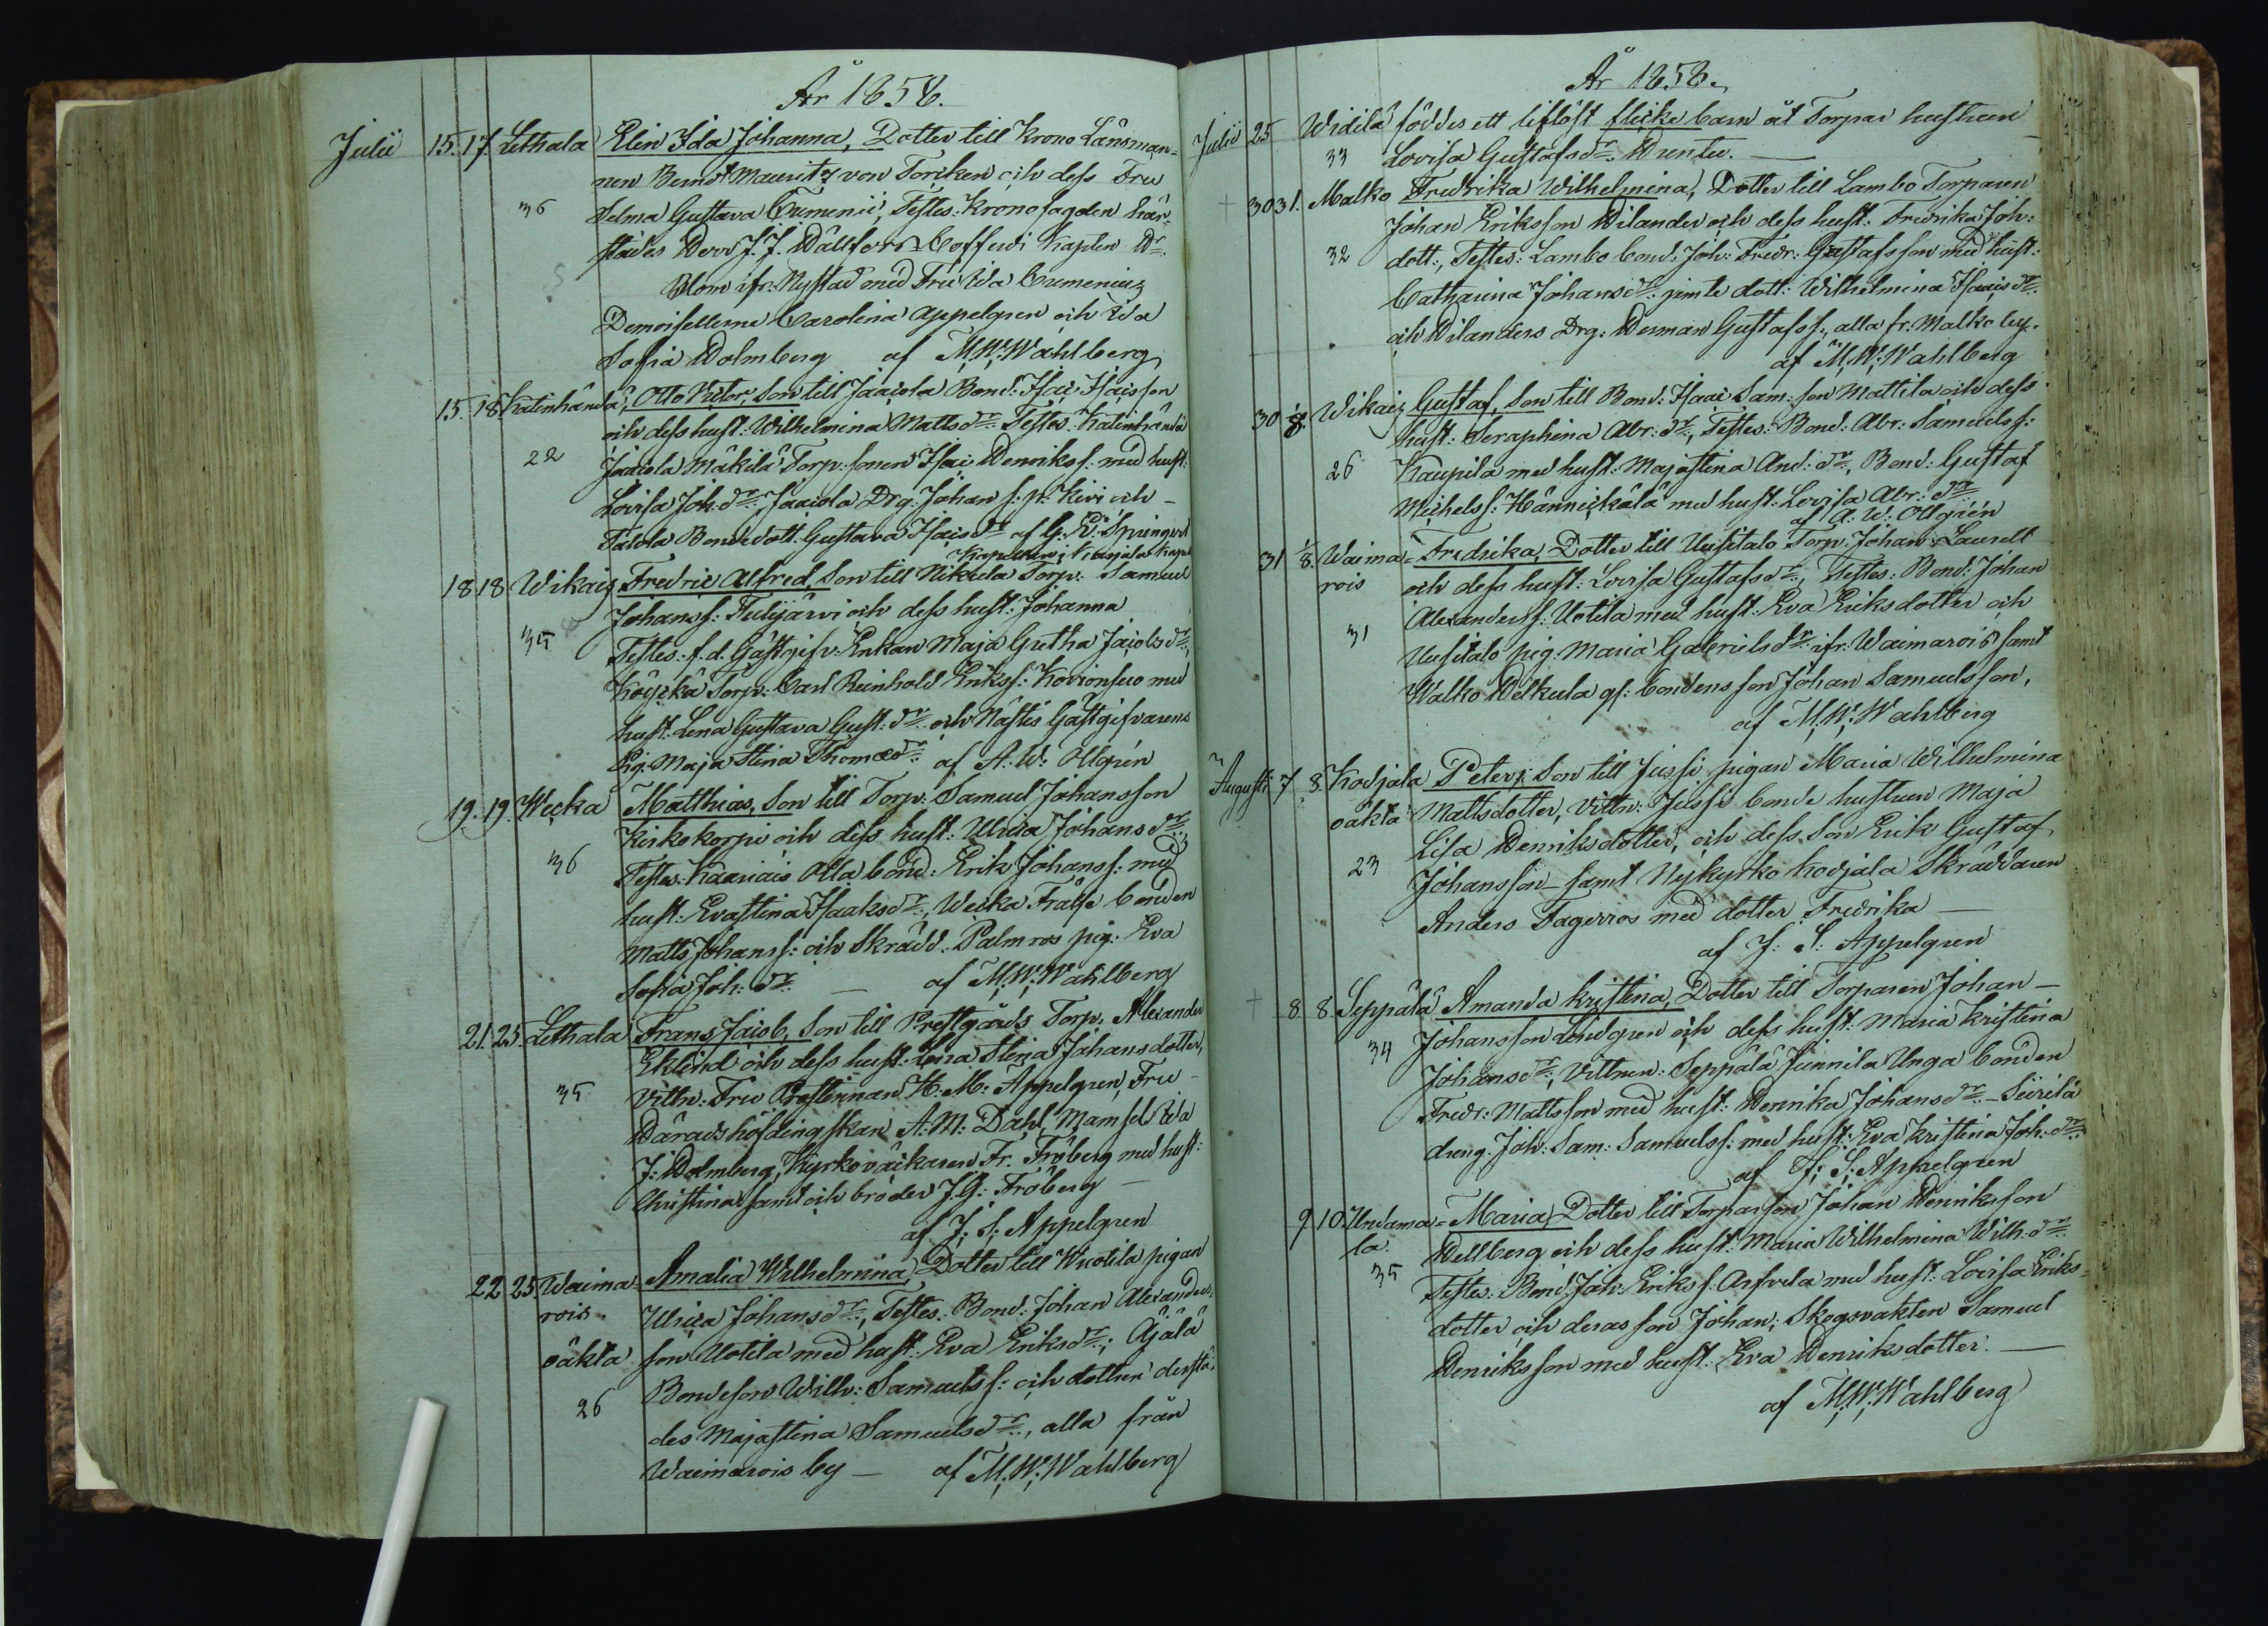 År 1858.
Julii 15. 17. Lethala Elin Ida Johanna, Dotter till Krono Länsman-
nen Bernd Mauritz von Torcken och dess Fru
36 Selma Gustava Cumenii, Testes: Kronofogden här-
städes Herr J. J. Hällfors, Coffardi Kapten H:r
Blom ifr. Nystad med Fru Ida Cumenius,
Demoisellerne Carolina Appelgren och Ida
Sofia Holmberg af M. W. Wahlberg
15. 18. Katinhändä, Otto Victor, Son till Jaacola Bond: Isac Isacsson
och dess hust: Wilhelmina Mattsd:r Testes: Katinhändä
22 Jaacola Mäkilä Torp. sonen Isac Henrikss: med hust:
Lovisa Joh:d:r, Jaacola Drg: Johan s. p. Kivi och
Tatola Bonddott. Gustava Isacsd:r af G. E. Springert
18 18 Wikais Fredric Alfred, Son till Nikula Torp: Samuel
Johanss: Tulijärvi och dess hust: Johanna
35 Testes: f. d. Gästgifv: Enkan Maja Gretha Jacobsd:r,
Köyckä Torp: Carl Reinhold Erikss: Kovionsuo med
hust. Lena Gustava Gust:d:r och Nästis Gästgifvarens
Pig. Maja Stina Thomasd:r af A. W. Ollgrén
19. 19. Wecka Matthias, Son till Torp: Samuel Johansson
Kirkokorpi och dess hust: Ulrica Johansd:r
36 Testes: Kaariais Olla bond: Erik Johanss: med
hust: Evastina Isaaksd:r, Wecka Frälse bonden
Matts Johanss: och Skrädd: Palmros pig: Eva
Sofia Joh:d:r af M. W. Wahlberg
21. 25. Lethala Frans Jacob, Son till Prestgårds Torp. Alexander
Eklind och dess hust: Lena Stina Johansdotter,
35 Vittn: Fru Prostinnan H. M: Appelgren, Fru
Häradshöfdingskan A. M: Dahl, Mamsel Ida
J: Holmberg, Kyrkoväktaren Fr. Fröberg med hust:
Christina samt och broder J. G: Fröberg
af J. S. Appelgren
22 25. Waima- Amalia Wilhelmina, Dotter till Wuotila pigan
rois Ulrica Johansd:r, Testes: Bond: Johan Alexanders-
oäkta son Uotila med hust: Eva Eriksd:r; Äjälä
26 Bondeson Wilh: Samuelss: och dotter derstä-
des Majastina Samuelsd:r, alla från
Waimarois by af M. W. Wahlberg
År 1858.
Julii 25 Widilä föddes ett liflöst flicke barn åt Torpar hustrun
33 Lovisa Gustafsd:r Hunter.
30 31. Malko Fredrika Wilhelmina, Dotter till Lambo Torparen
Johan Eriksson Wilander och dess hust: Fredrika Joh:
32 dott:, Testes: Lambo bond: Joh: Fredr: Gustafsson med hust:
Catharina Johansd:r jemte dott: Wilhelmina Isacsd:r
och Wilanders Drg: Herman Gustafss:, alla fr. Malko by.
af M. W. Wahlberg
30 1/8. Wikais Gustaf, Son till Bond: Isaac Sam:son Mattila och dess
hust: Seraphina Abr:d:r, Testes: Bond: Abr: Samuelss:
26 Kaupila med hust: Majastina And:d:r, Bond: Gustaf
Michelss: Hännickälä med hust: Lovisa Abr:d:r
af A. W. Ollgrén
31 1/8. Waima- Fredrika, Dotter till Uusitalo Torp: Johan Laurell
rois och dess hust: Lovisa Gustafsd:r, Testes: Bond: Johan
31 Alexanderss: Uotila med hust: Eva Eriksdotter och
Uusitalo pig. Maria Gabrielsd:r ifr. Waimarois samt
Walko Helkula gl: bondens son Johan Samuelsson,
af M. W. Wahlberg
Augusti 7 8. Kodjala Peter, Son till Jussi pigan Maria Wilhelmina
oäkta Mattsdotter, Vittn: Jussi bonde hustrun Maja
23 Lisa Henriksdotter, och dess Son Erik Gustaf
Johansson samt Nykyrko Kodjala Skräddaren
Anders Fagerros med dotter Fredrika
af J. S. Appelgren
8 8. Seppälä Amanda Kristina, Dotter till Torparen Johan
34 Johansson Lindgren och dess hust: Maria Kristina
Johansd:r, Vittnen: Seppälä Junnila Unga bonden
Fredr: Mattsson med hust: Henrika Johansd:r Siirilä
dreng. Joh: Sam: Samuelss: med hust: Eva Kristina Joh:d:r
af J. S. Appelgren
9 10. Undama- Maria, Dotter till Torparson Johan Henriksson
la Hellberg och dess hust: Maria Wilhelmina Wilh:d:r
35 Testes: Bond: Joh: Erikss: Arfvela med hust: Lovisa Eriks-
dotter och deras son Johan; Skogsvakten Samuel
Henriksson med hust: Eva Henriksdotter.
af M. W. Wahlberg